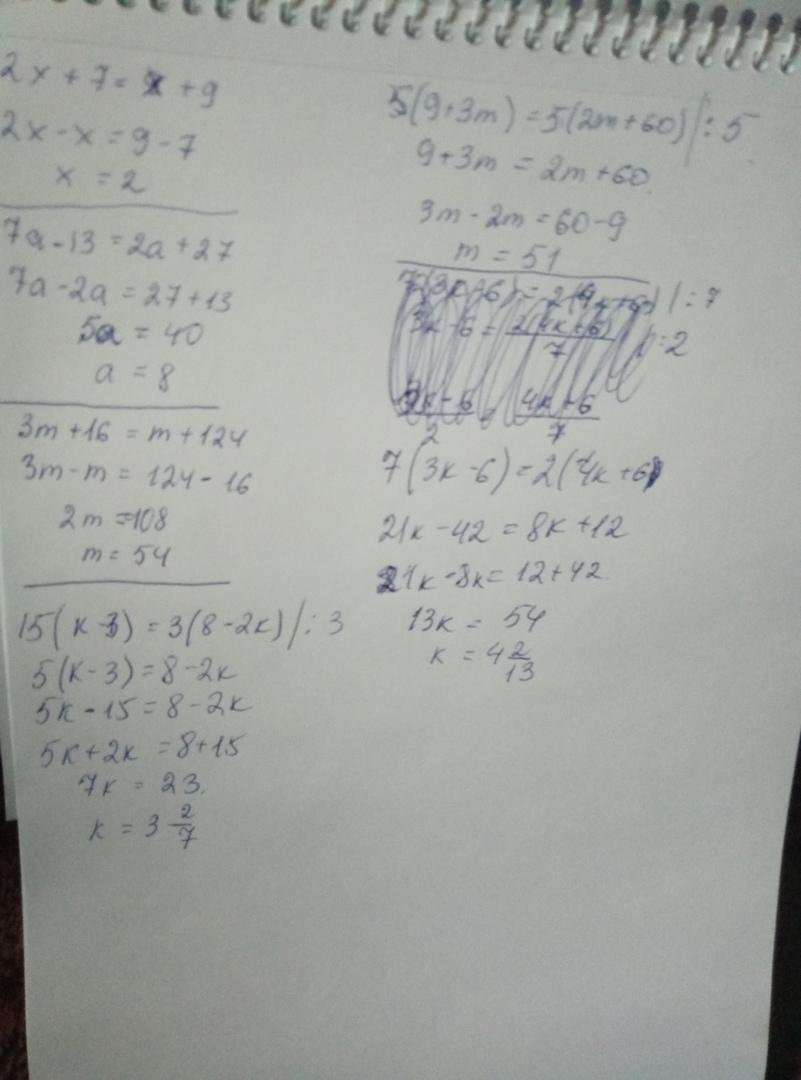 2x + 7 = x + 9
2x - x = 9 - 7
x = 2
7a - 13 = 2a + 27
7a - 2a = 27 + 13
5a = 40
a = 8
3m + 16 = m + 124
3m - m = 124 - 16
2m = 108
m = 54
15(k - 3) = 3(8 - 2k) | : 3
5(k - 3) = 8 - 2k
5k - 15 = 8 - 2k
5k + 2k = 8 + 15
7k = 23.
k = 3 2/7
5(9 + 3m) = 5(2m + 60) | : 5
9 + 3m = 2m + 60.
3m - 2m = 60 - 9
m = 51
7(3k - 6) = 2(4k + 6) | : 7
3k - 6 = 2(4k + 6)/7 | : 2
3k - 6/2 = 4k + 6/7
7(3k - 6) = 2(4k + 6)
21k - 42 = 8k + 12
21k - 8k = 12 + 42
13k = 54
k = 4 2/13